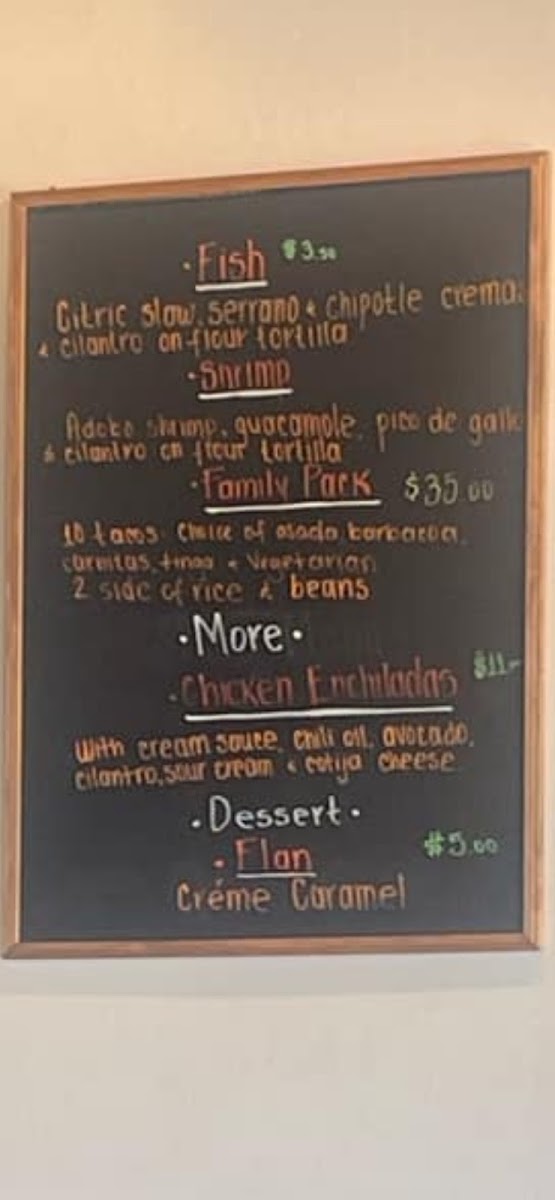 · Fish $3.50
Citric slaw, serrano & chipotle crema,
& cilantro on flour tortilla
· Shrimp
Adobo shrimp, guacamole, pico de gallo
& cilantro on flour tortilla
· Family Pack $35.00
10 tacos choice of asada barbacoa,
carnitas, tinga & Vegetarian
2 side of rice & beans
· More ·
· Chicken Enchiladas $11-
With cream sauce, chili oil, avocado,
cilantro, sour cream & cotija cheese
· Dessert ·
· Flan $5.00
Créme Caramel